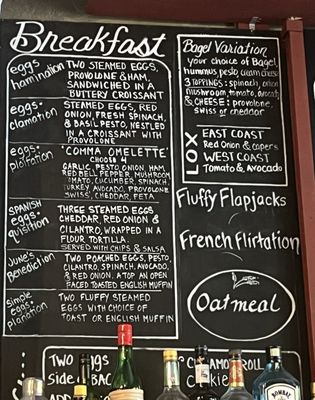 Breakfast
eggs·
hamination
TWO STEAMED EGGS,
PROVOLONE & HAM,
SANDWICHED IN A
BUTTERY CROISSANT
eggs·
clamation
STEAMED EGGS, RED
ONION, FRESH SPINACH,
& BASIL PESTO, NESTLED
IN A CROISSANT WITH
PROVOLONE
eggs·
'COMMA OMELETTE'
CHOOSE 4
GARLIC, PESTO, ONION, HAM,
RED BELL PEPPER, MUSHROOM
TOMATO, CUCUMBER, SPINACH,
TURKEY, AVOCADO, PROVOLONE
SWISS, CHEDDAR, FETA
SPANISH
eggs·
quisition
THREE STEAMED EGGS
CHEDDAR, RED ONION &
CILANTRO, WRAPPED IN A
FLOUR TORTILLA.
SERVED WITH CHIPS & SALSA
June's
Benediction
TWO POACHED EGGS, PESTO,
CILANTRO, SPINACH, AVOCADO,
& RED ONION, ATOP AN OPEN
FACED TOASTED ENGLISH MUFFIN
Simple
eggs·
planation
TWO FLUFFY STEAMED
EGGS WITH CHOICE OF
TOAST OR ENGLISH MUFFIN
Bagel Variation
your choice of Bagel,
hummus, pesto, cream cheese
3 TOPPINGS: spinach, onion
mushroom, tomato, avocado
& CHEESE: provolone,
swiss or cheddar
LOX
EAST COAST
Red Onion & capers
WEST COAST
Tomato & Avocado
Fluffy Flapjacks
French Flirtation
Oatmeal
TWO EGGS
side
BAC
COOKIE
BOMBAY